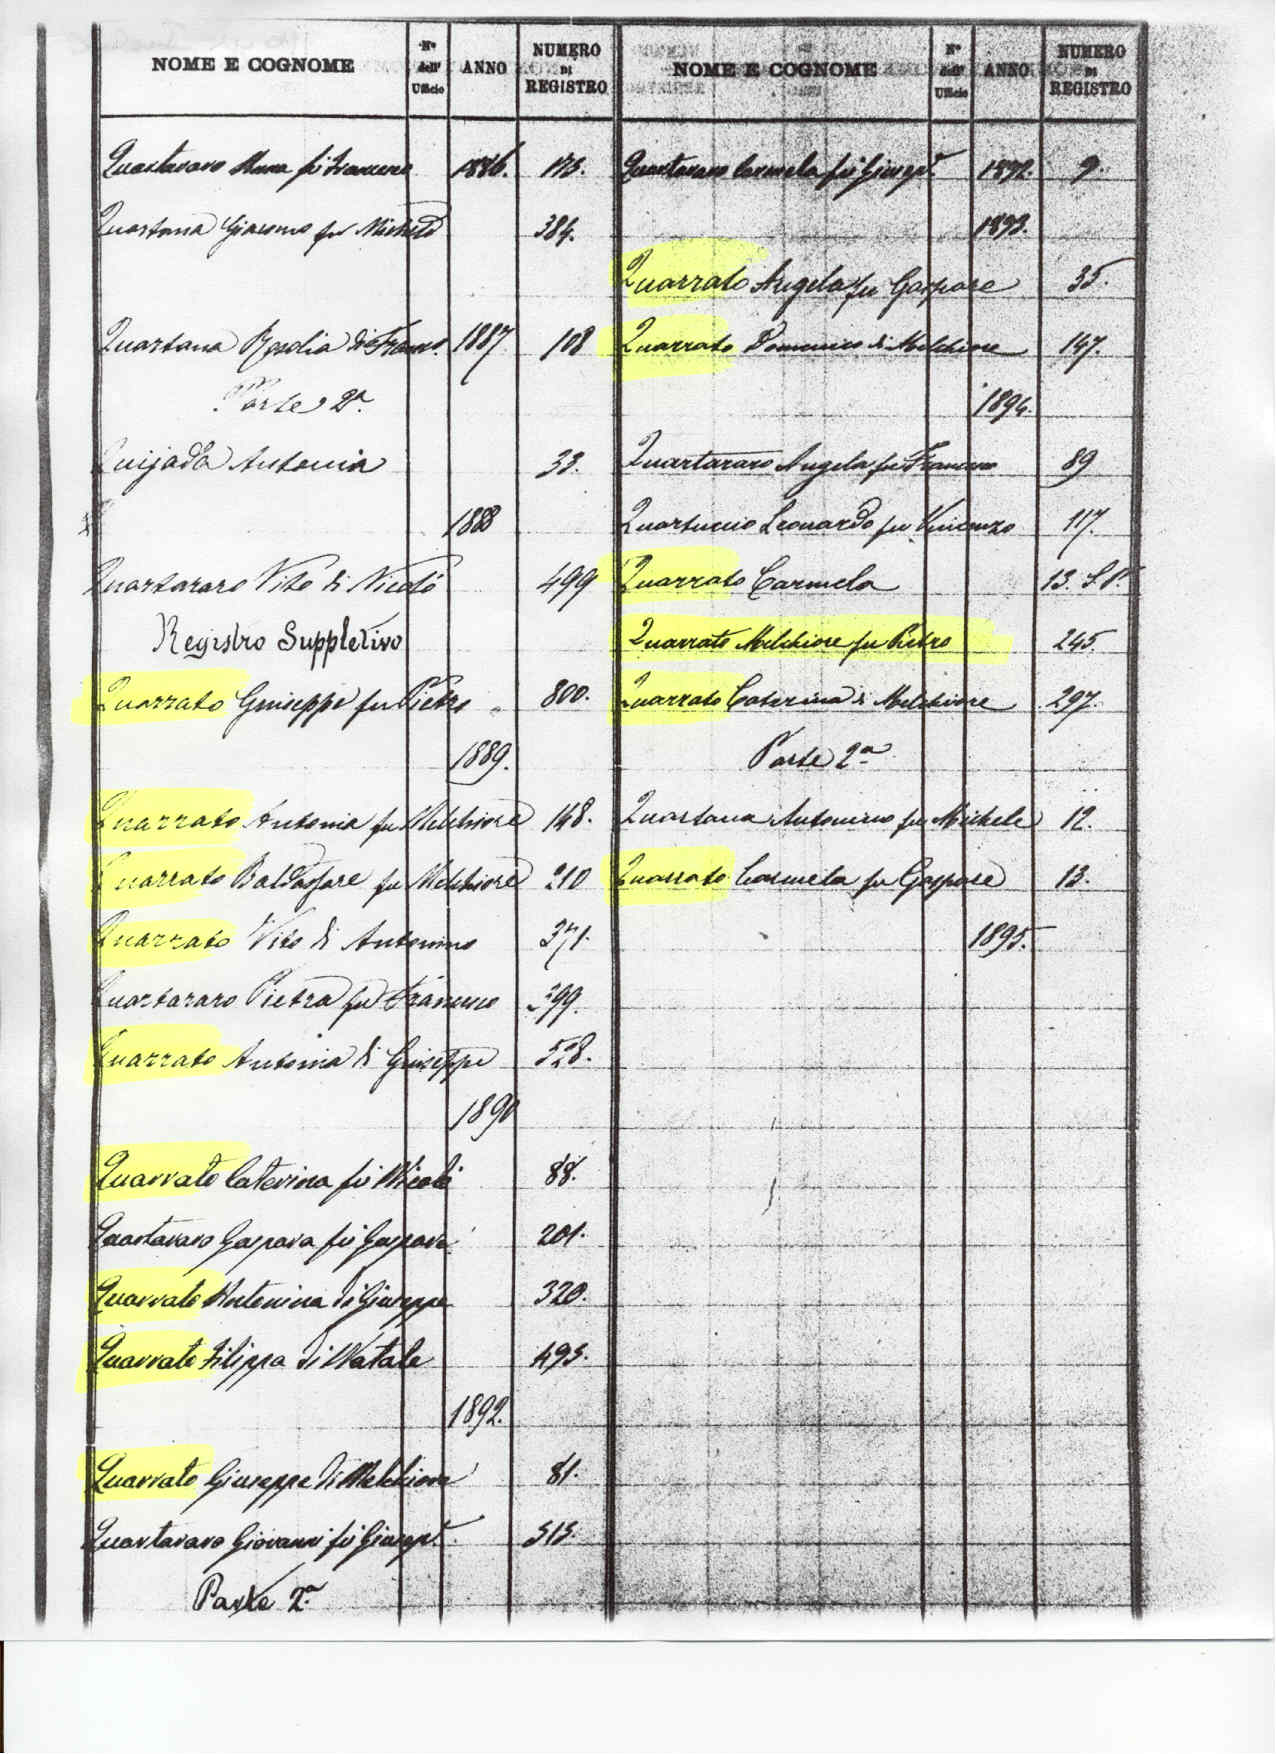 NOME E COGNOME N° dell' Ufficio ANNO NUMERO DI REGISTRO
Quartararo Anna fu Francesco 1886. 173.
Quartana Giacomo fu Michele 384.
Quartana Rosolia di Franco. 1887 108
Parte 2ª
Quijada Antonia 33.
1888
Quartararo Vito di Nicolò 499
Registro Suppletivo
Quarrato Giuseppe fu Pietro 800.
1889.
Quarrato Antonia fu Melchiore 148.
Quarrato Baldassare fu Melchiore 210
Quarrato Vito di Antonino 371.
Quartararo Pietra fu Francesco 399.
Quarrato Antonia di Giuseppe 528.
1890
Quarrato Caterina fu Nicolò 88.
Quartararo Gaspara fu Gaspare 201.
Quarrato Antonina di Giuseppe 320.
Quarrato Filippa di Natale 493.
1892.
Quarrato Giuseppe di Melchiore 81.
Quartararo Giovanni fu Giusep. 313.
Parte 2ª
NOME E COGNOME N° dell' Ufficio ANNO NUMERO DI REGISTRO
Quartararo Carmela fu Giusep. 1892. 9.
1893.
Quarrato Angela fu Gaspare 35.
Quarrato Domenico di Melchiore 147.
1894.
Quartararo Angela fu Francesco 89
Quartuccio Leonardo fu Vincenzo 117.
Quarrato Carmela 13. S.P.
Quarrato Melchiore fu Pietro 245.
Quarrato Caterina di Melchiore 297.
Parte 2ª
Quartana Antonino fu Michele 12.
Quarrato Carmela fu Gaspare 13.
1895.